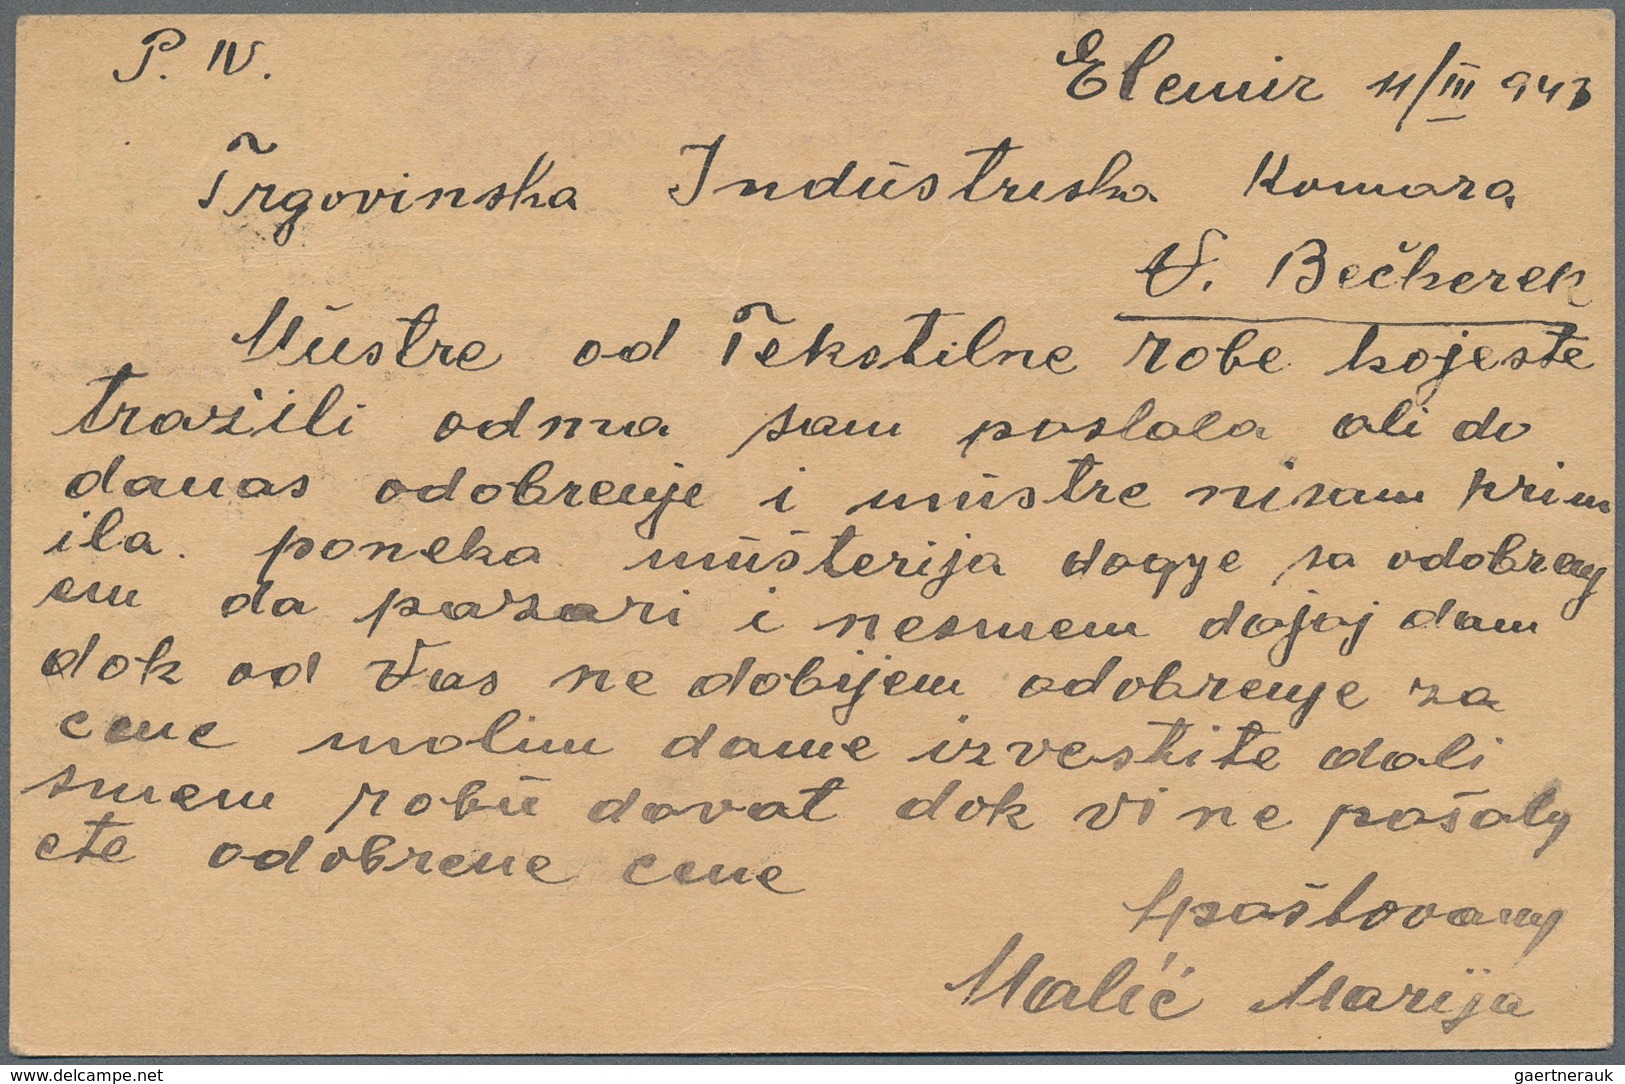 P. IV.
Elemir 11/III 943
Trgovinska Indŭstriska Komara
V. Bečkerek
Mŭstre od Tekstilne robe kojeste
tražili odma sam poslala ali do
danas odobrenje i mŭstre nisam prim
ila. poneka mŭšterija dogje sa odobrenj
em da pazari i nesmem dajoj dam
dok od Vas ne dobijem odobrenje za
cene molim dame izvestite dali
smem robŭ davat dok vi ne pošalj
ete odobrene cene
Spoštovanj
Malić Marija
www.delcampe.net
gaertnerauk